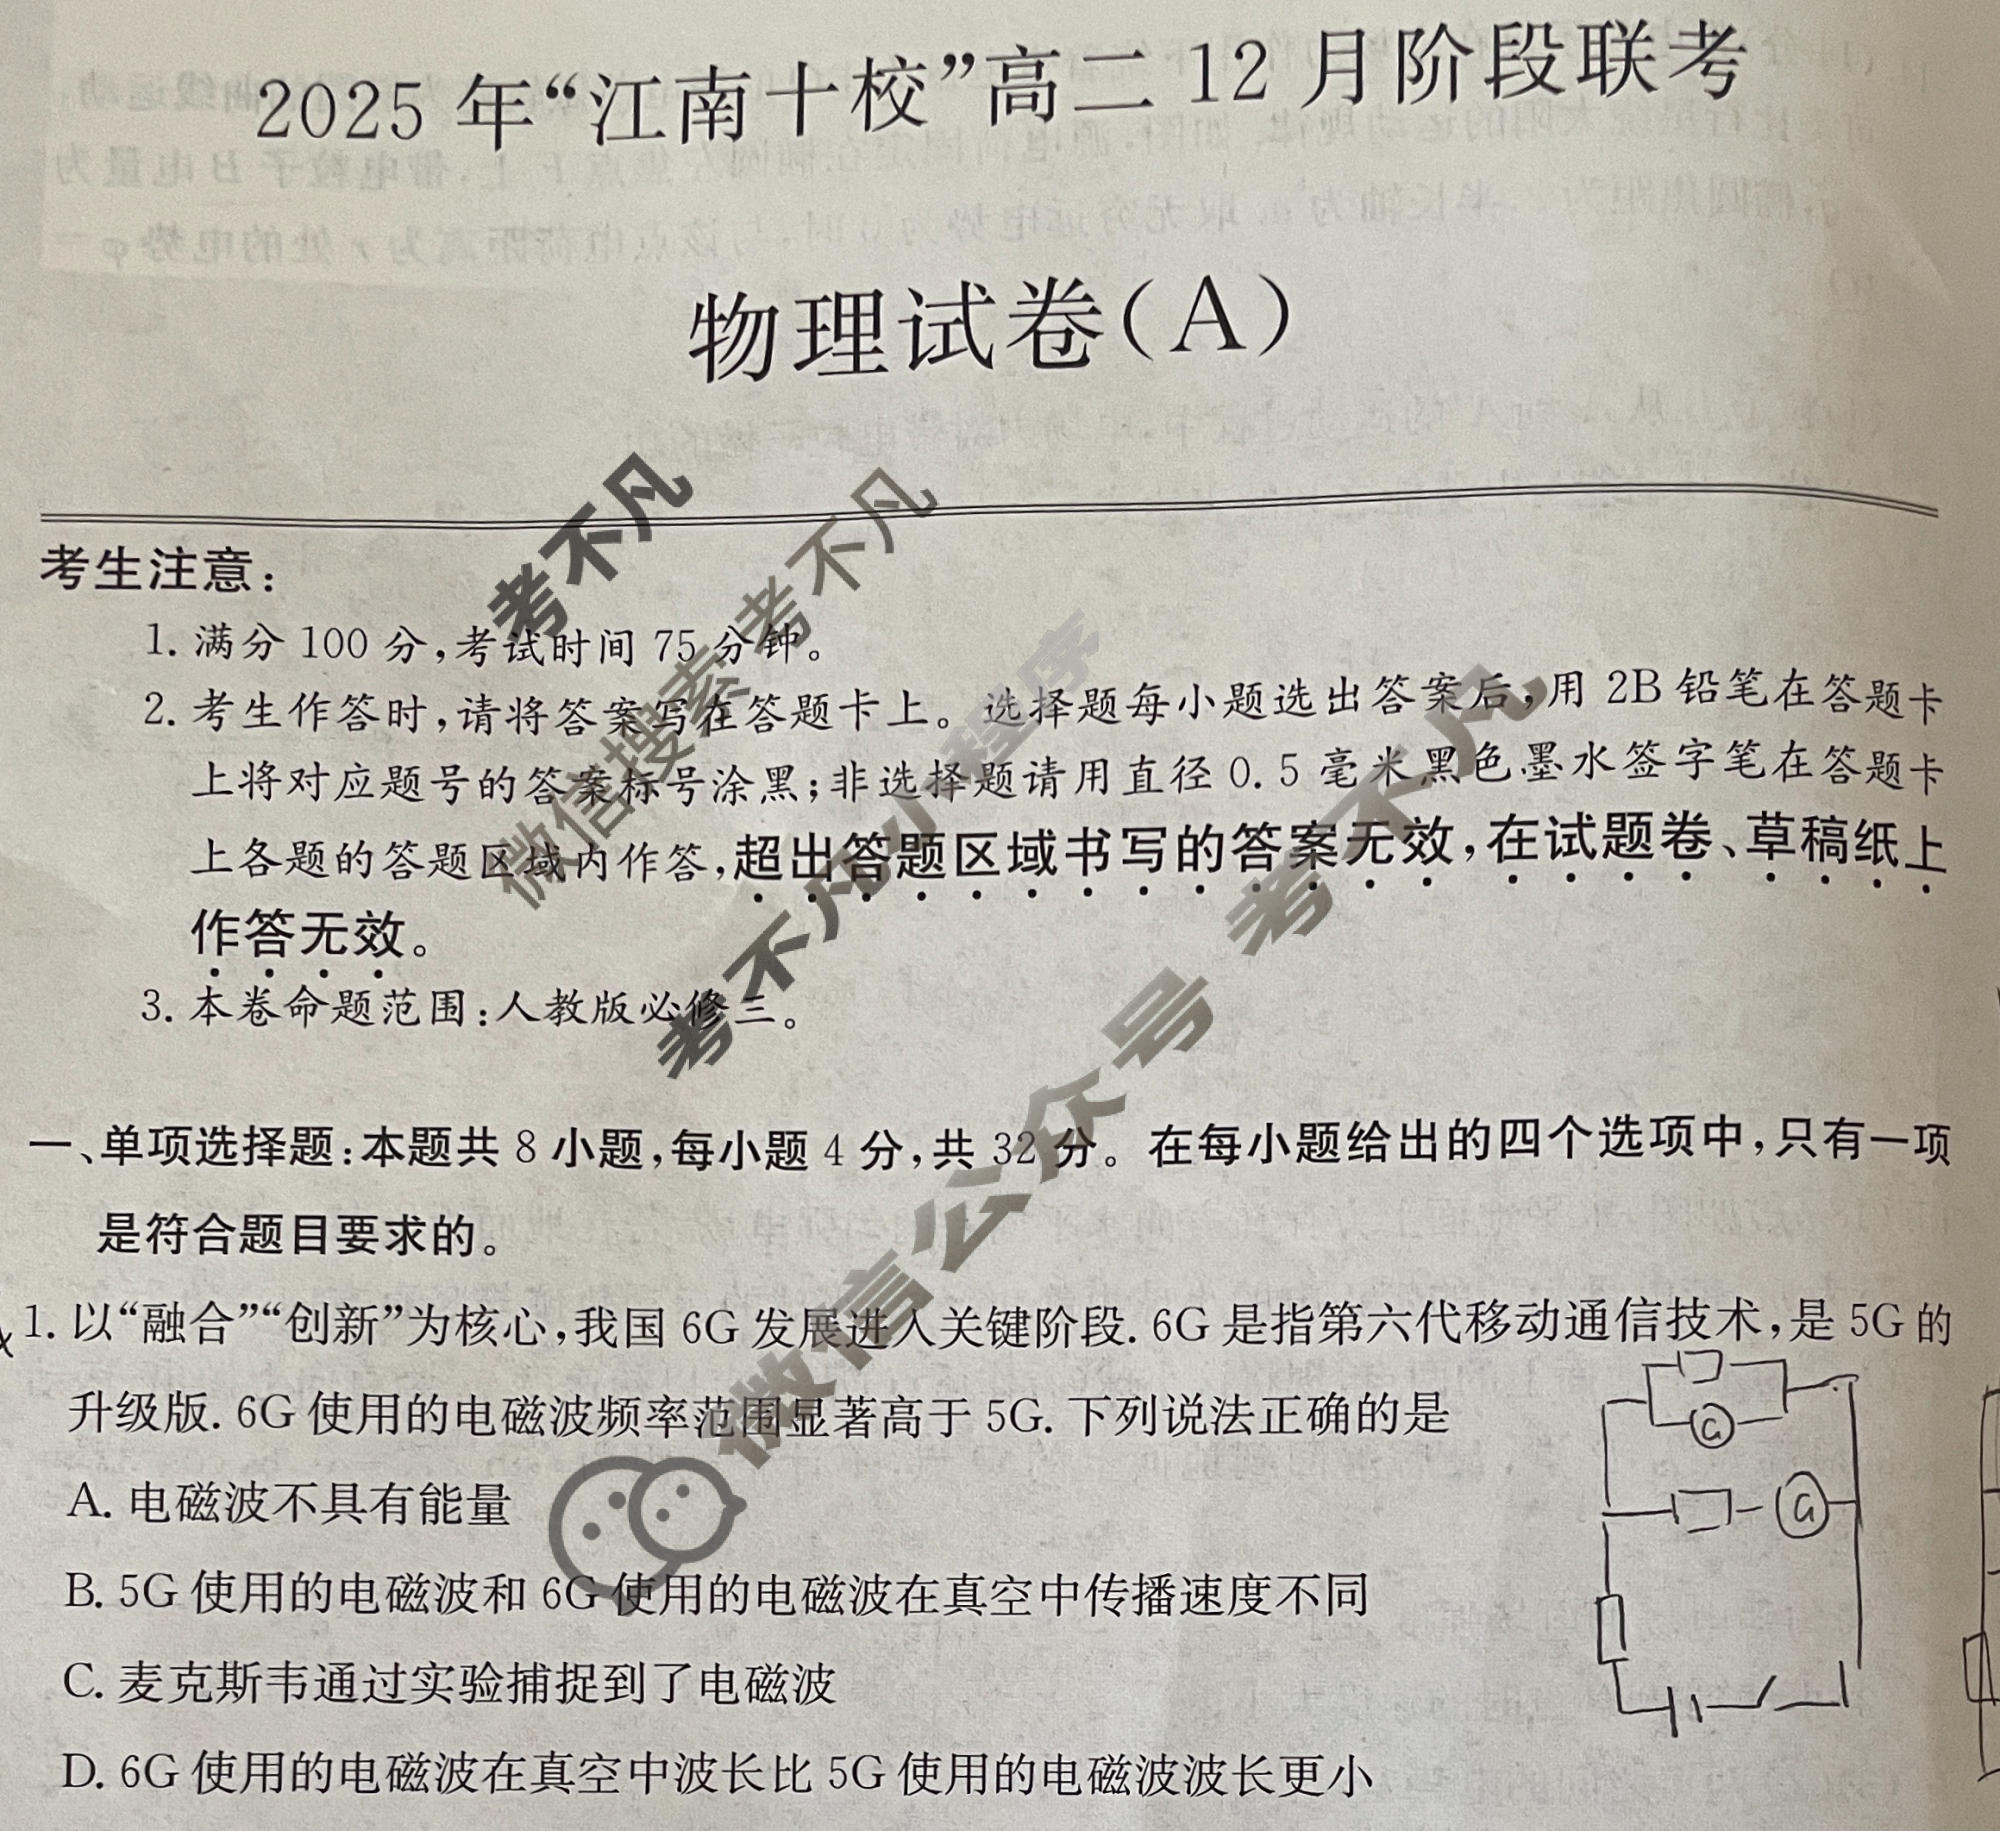 2025年“江南十校”高二12月阶段联考
物理试卷(A)
考生注意:
1. 满分100分,考试时间75分钟。
2. 考生作答时,请将答案写在答题卡上。选择题每小题选出答案后,用2B铅笔在答题卡
上将对应题号的答案标号涂黑;非选择题请用直径0.5毫米黑色墨水签字笔在答题卡
上各题的答题区域内作答,超出答题区域书写的答案无效,在试题卷、草稿纸上
作答无效。
3. 本卷命题范围:人教版必修三。
一、单项选择题:本题共8小题,每小题4分,共32分。在每小题给出的四个选项中,只有一项
是符合题目要求的。
1. 以“融合”“创新”为核心,我国6G发展进入关键阶段. 6G是指第六代移动通信技术,是5G的
升级版. 6G使用的电磁波频率范围显著高于5G. 下列说法正确的是
A. 电磁波不具有能量
B. 5G使用的电磁波和6G使用的电磁波在真空中传播速度不同
C. 麦克斯韦通过实验捕捉到了电磁波
D. 6G使用的电磁波在真空中波长比5G使用的电磁波波长更小
G
G
考不凡
微信搜索 考不凡
考不凡小程序
微信公众号 考不凡